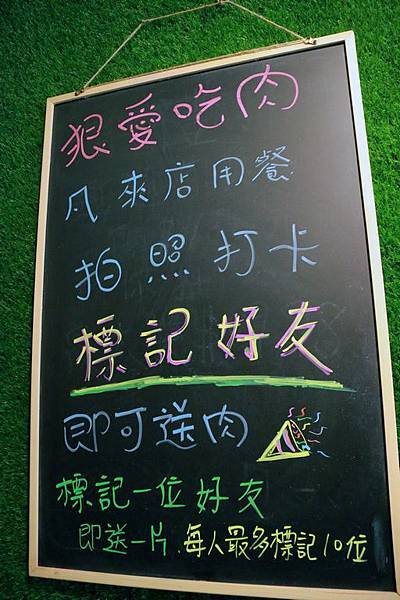 狠愛吃肉
凡來店用餐
拍照打卡
標記好友
即可送肉
標記一位好友
即送一片.每人最多標記10位